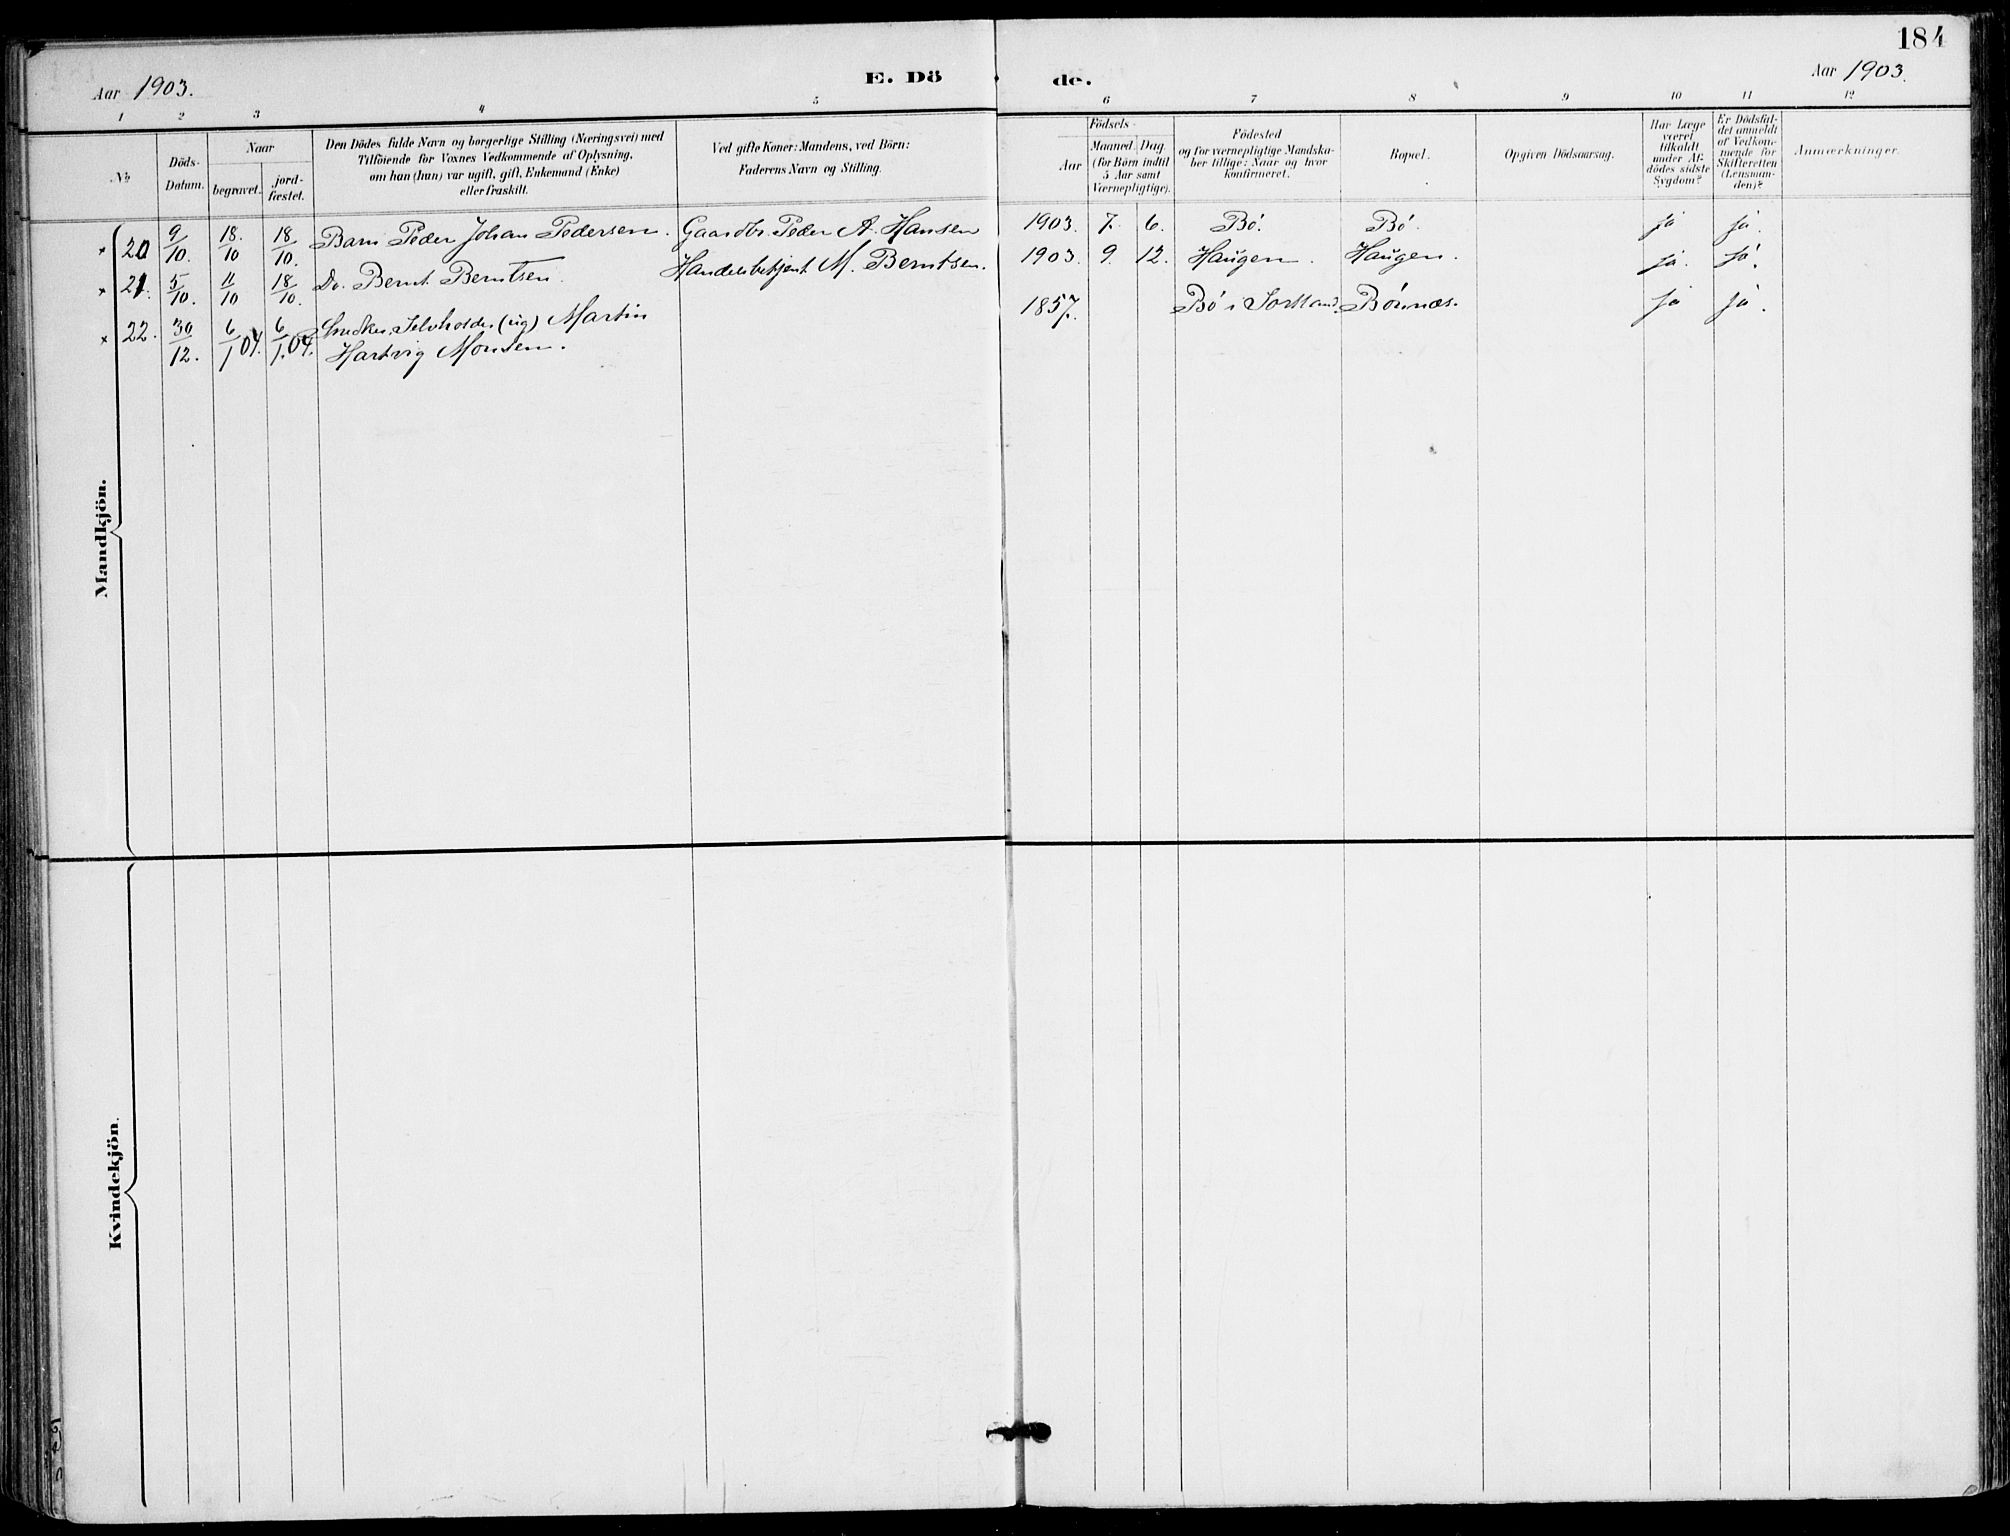 184
Aar 1903.
E. Dö
de.
Aar 1903.
1 2 3 4 5 6 7 8 9 10 11 12
No
Döds-
Datum.
Naar
begravet.
jord-
fæstet.
Den Dödes fulde Navn og borgerlige Stilling (Næringsvei) med
Tilföiende for Voxnes Vedkommende af Oplysning,
om han (hun) var ugift, gift, Enkemand (Enke)
eller fraskilt.
Ved gifte Koner: Mandens, ved Börn:
Faderens Navn og Stilling.
Födsels-
Aar
Maaned.
Dag.
(for Börn indtil
5 Aar samt
Værnepligtige).
Födested
og for værnepligtige Mandska-
ber tillige: Naar og hvor
konfirmeret.
Bopæl.
Opgiven Dödsaarsag.
Har Læge
været
tilkaldt
under Af-
dödes sidste
Sygdom?
Er Dödsfal-
det anmeldt
af Vedkom-
mende for
Skifteretten
(Lensman-
den)?
Anmærkninger.
× 20 9/10. 18./10 18/10. Barn Peder Johan Pedersen. Gaardbr. Peder A. Hansen 1903. 7. 6. Bö. Bö. ja ja.
× 21. 5/10. 11/10 18/10. Do. Bernt Berntsen. Handelsbetjent M. Berntsen. 1903. 9. 12. Haugen. Haugen. ja. ja.
× 22. 30/12. 6/1 04. 6/1. 04. Snedker, Selvholdr (ug) Martin 1857. Bö i Sortland. ja ja.
Hartvig Monsen.
Mandkjön.
Kvindekjön.